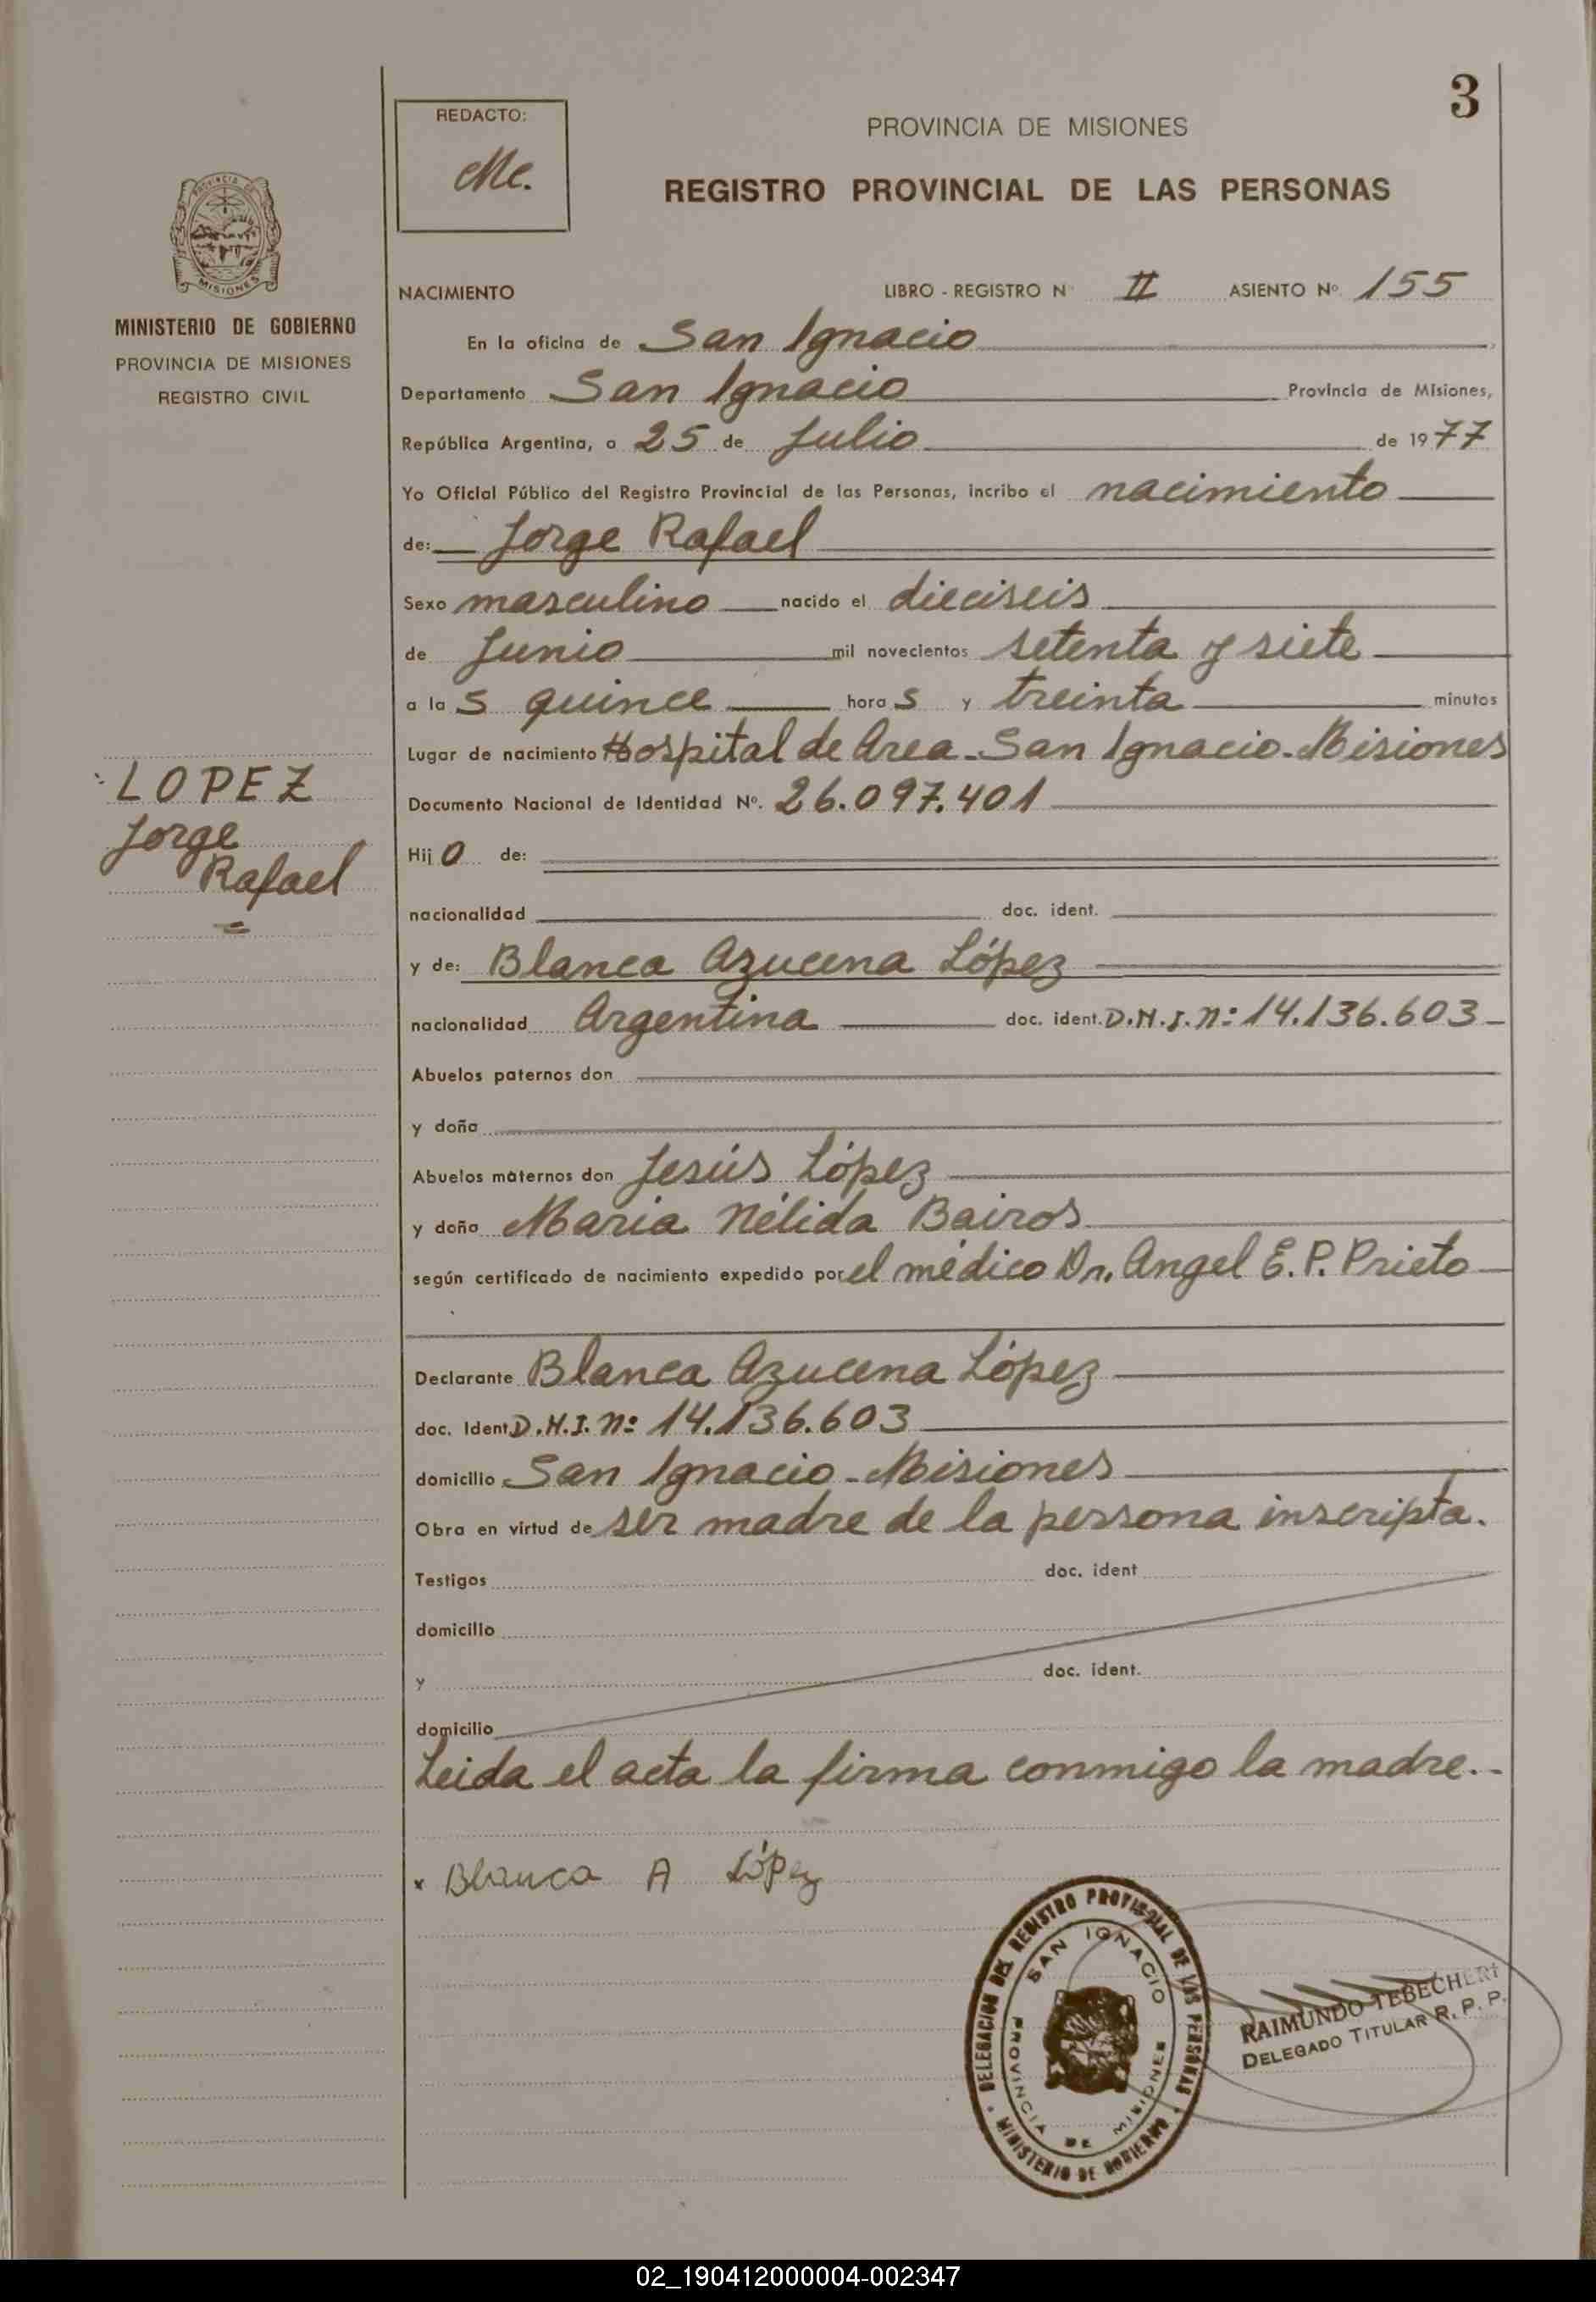 3
REDACTO:
Me.
PROVINCIA DE MISIONES
REGISTRO PROVINCIAL DE LAS PERSONAS
PROVINCIA DE
MISIONES
MINISTERIO DE GOBIERNO
PROVINCIA DE MISIONES
REGISTRO CIVIL
NACIMIENTO LIBRO - REGISTRO N II ASIENTO Nº 155
En la oficina de San Ignacio
Departamento San Ignacio Provincia de Misiones,
República Argentina, a 25 de Julio de 1977
Yo Oficial Público del Registro Provincial de las Personas, incribo el nacimiento
de: Jorge Rafael
Sexo masculino nacido el dieciseis
de Junio mil novecientos setenta y siete
a las quince horas y treinta minutos
Lugar de nacimiento Hospital de Area - San Ignacio - Misiones
LOPEZ
Jorge
Rafael
Documento Nacional de Identidad Nº. 26.097.401
Hijo de:
nacionalidad doc. ident.
y de: Blanca Azucena López
nacionalidad Argentina doc. ident. D.N.I. nº 14.136.603
Abuelos paternos don
y doña
Abuelos maternos don Jesús López
y doña Maria Nélida Bairos
según certificado de nacimiento expedido por el médico Dr. Angel E. P. Prieto
Declarante Blanca Azucena López
doc. Ident D.N.I. nº 14.136.603
domicilio San Ignacio - Misiones
Obra en virtud de ser madre de la persona inscripta.
Testigos doc. ident
domicilio
y doc. ident.
domicilio
Leida el acta la firma conmigo la madre.-
x Blanca A López
DELEGACION DEL REGISTRO PROVINCIAL DE LAS PERSONAS
MINISTERIO DE GOBIERNO
SAN IGNACIO
PROVINCIA DE MISIONES
RAIMUNDO TEBECHERI
DELEGADO TITULAR R. P. P.
02_190412000004-002347